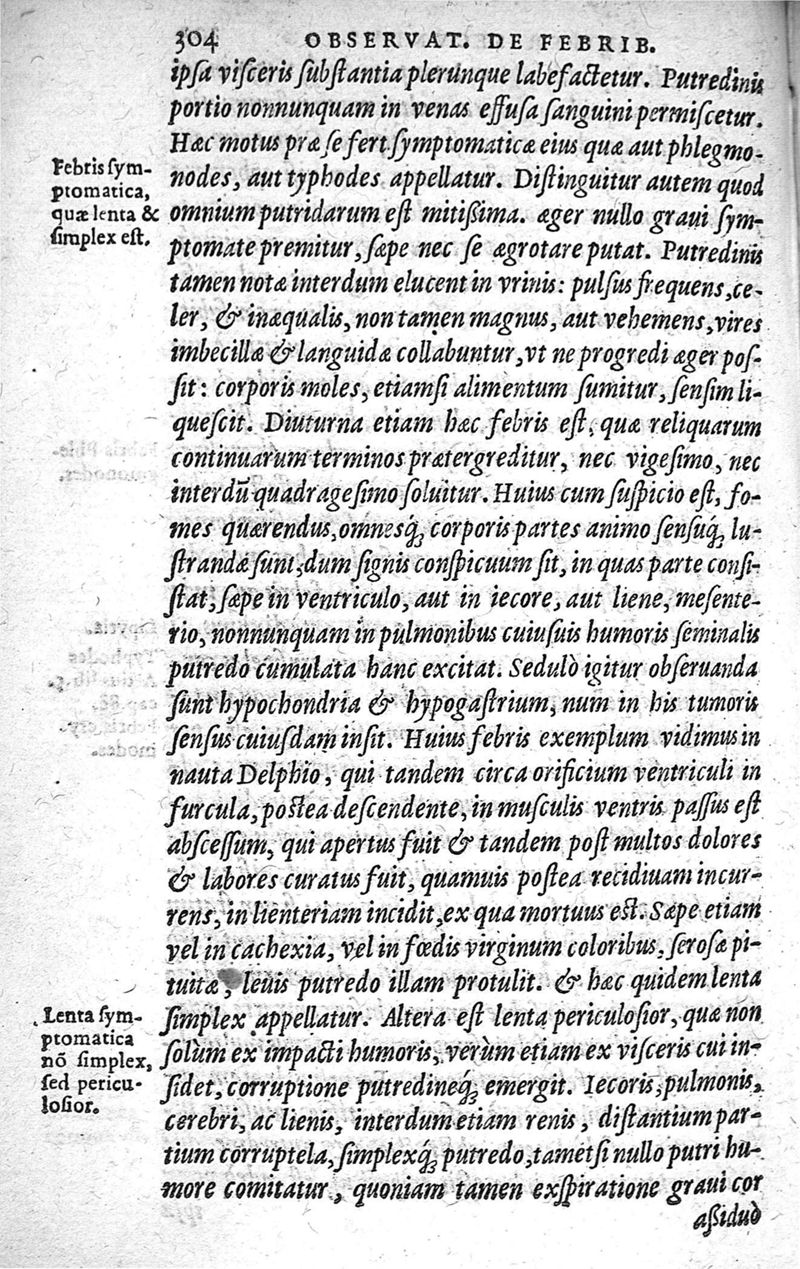 304 OBSERVAT. DE FEBRIB.
ipſa viſceris ſubſtantia plerunque labefactetur. Putredinis
portio nonnunquam in venas effuſa ſanguini permiſcetur.
Hæc motus præ ſe fert ſymptomaticæ eius quæ aut phlegmo-
nodes, aut typhodes appellatur. Diſtinguitur autem quod
omnium putridarum eſt mitißima. æger nullo graui ſym-
ptomate premitur, ſæpe nec ſe ægrotare putat. Putredinis
tamen notæ interdum elucent in vrinis: pulſus frequens, ce-
ler, & inæqualis, non tamen magnus, aut vehemens, vires
imbecillæ & languidæ collabuntur, vt ne progredi æger poſ-
ſit: corporis moles, etiamſi alimentum ſumitur, ſenſim li-
queſcit. Diuturna etiam hæc febris eſt, quæ reliquarum
continuarum terminos prætergreditur, nec vigeſimo, nec
interdū quadrageſimo ſoluitur. Huius cum ſuſpicio eſt, fo-
mes quærendus, omnesq́; corporis partes animo ſenſuq́; lu-
ſtrandæ ſunt, dum ſignis conſpicuum ſit, in quas parte conſi-
ſtat, ſæpe in ventriculo, aut in iecore, aut liene, meſente-
rio, nonnunquam in pulmonibus cuiuſuis humoris ſeminalis
putredo cumulata hanc excitat. Sedulò igitur obſeruanda
ſunt hypochondria & hypogaſtrium, num in his tumoris
ſenſus cuiuſdam inſit. Huius febris exemplum vidimus in
nauta Delphio, qui tandem circa orificium ventriculi in
furcula, poſtea deſcendente, in muſculis ventris paſſus eſt
abſceſſum, qui apertus fuit & tandem poſt multos dolores
& labores curatus fuit, quamuis poſtea recidiuam incur-
rens, in lienteriam incidit, ex qua mortuus eſt. Sæpe etiam
vel in cachexia, vel in fœdis virginum coloribus, ſeroſæ pi-
tuitæ, leuis putredo illam protulit. & hæc quidem lenta
ſimplex appellatur. Altera eſt lenta periculoſior, quæ non
ſolùm ex impacti humoris, verùm etiam ex viſceris cui in-
ſidet, corruptione putredineq́; emergit. Iecoris, pulmonis,
cerebri, ac lienis, interdum etiam renis, diſtantium par-
tium corruptela, ſimplexq́; putredo, tametſi nullo putri hu-
more comitatur, quoniam tamen exſpiratione graui cor
aßiduò
Febris ſym-
ptomatica,
quæ lenta &
ſimplex eſt.
Lenta ſym-
ptomatica
nō ſimplex,
ſed pericu-
loſior.